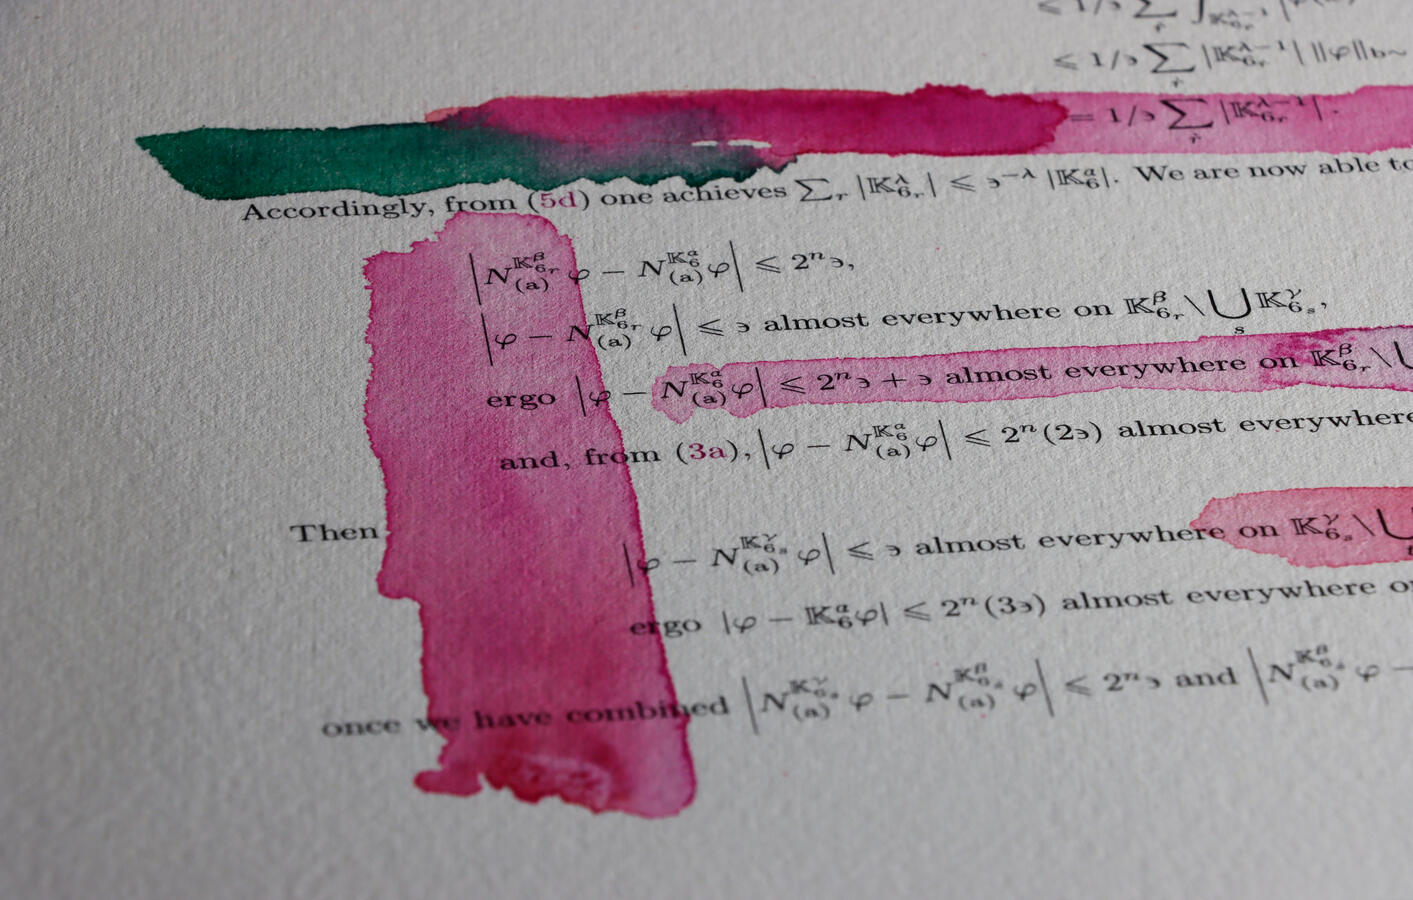 ⩽ 1/϶ ∑_r ∫_{𝕂_{6_r}^{λ−1}} |φ(
⩽ 1/϶ ∑_r |𝕂_{6_r}^{λ−1}| ‖φ‖_{b∼
= 1/϶ ∑_r |𝕂_{6_r}^{λ−1}|.
Accordingly, from (5d) one achieves ∑_r |𝕂_{6_r}^λ| ⩽ ϶^{−λ} |𝕂_6^α|. We are now able to
|N_{(a)}^{𝕂_{6_r}^β} φ − N_{(a)}^{𝕂_6^α} φ| ⩽ 2^n ϶,
|φ − N_{(a)}^{𝕂_{6_r}^β} φ| ⩽ ϶ almost everywhere on 𝕂_{6_r}^β \ ⋃_s 𝕂_{6_s}^γ,
ergo |φ − N_{(a)}^{𝕂_6^α} φ| ⩽ 2^n ϶ + ϶ almost everywhere on 𝕂_{6_r}^β \ ⋃
and, from (3a), |φ − N_{(a)}^{𝕂_6^α} φ| ⩽ 2^n (2϶) almost everywhere
Then
|φ − N_{(a)}^{𝕂_{6_s}^γ} φ| ⩽ ϶ almost everywhere on 𝕂_{6_s}^γ \ ⋃
ergo |φ − 𝕂_6^α φ| ⩽ 2^n (3϶) almost everywhere
once we have combined |N_{(a)}^{𝕂_{6_s}^γ} φ − N_{(a)}^{𝕂_{6_s}^β} φ| ⩽ 2^n ϶ and |N_{(a)}^{𝕂_{6_s}^β} φ −